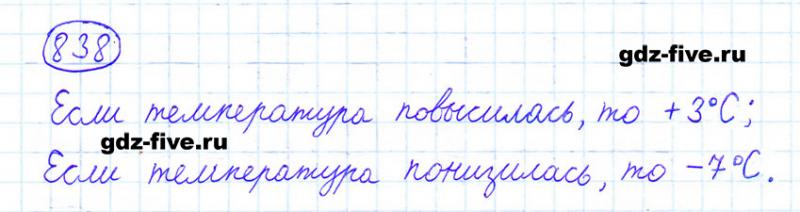 838
gdz-five.ru
Если температура повысилась, то +3°C;
gdz-five.ru
Если температура понизилась, то -7°C.